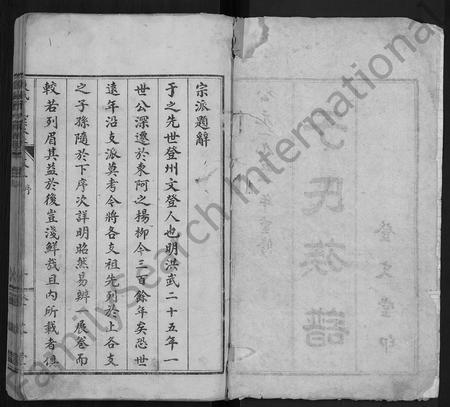 氏族譜
登文堂印
宗派題辭
于之先世登州文登人也明洪武二十五年一
世公深遷於東阿之楊柳今三百餘年矣恐世
遠年沿支派莫考今將各支祖先列於上各支
之子孫隨於下序次詳明昭然易辨一展卷而
較若列眉其益於後豈淺鮮哉且內所載者俱
FamilySearch International